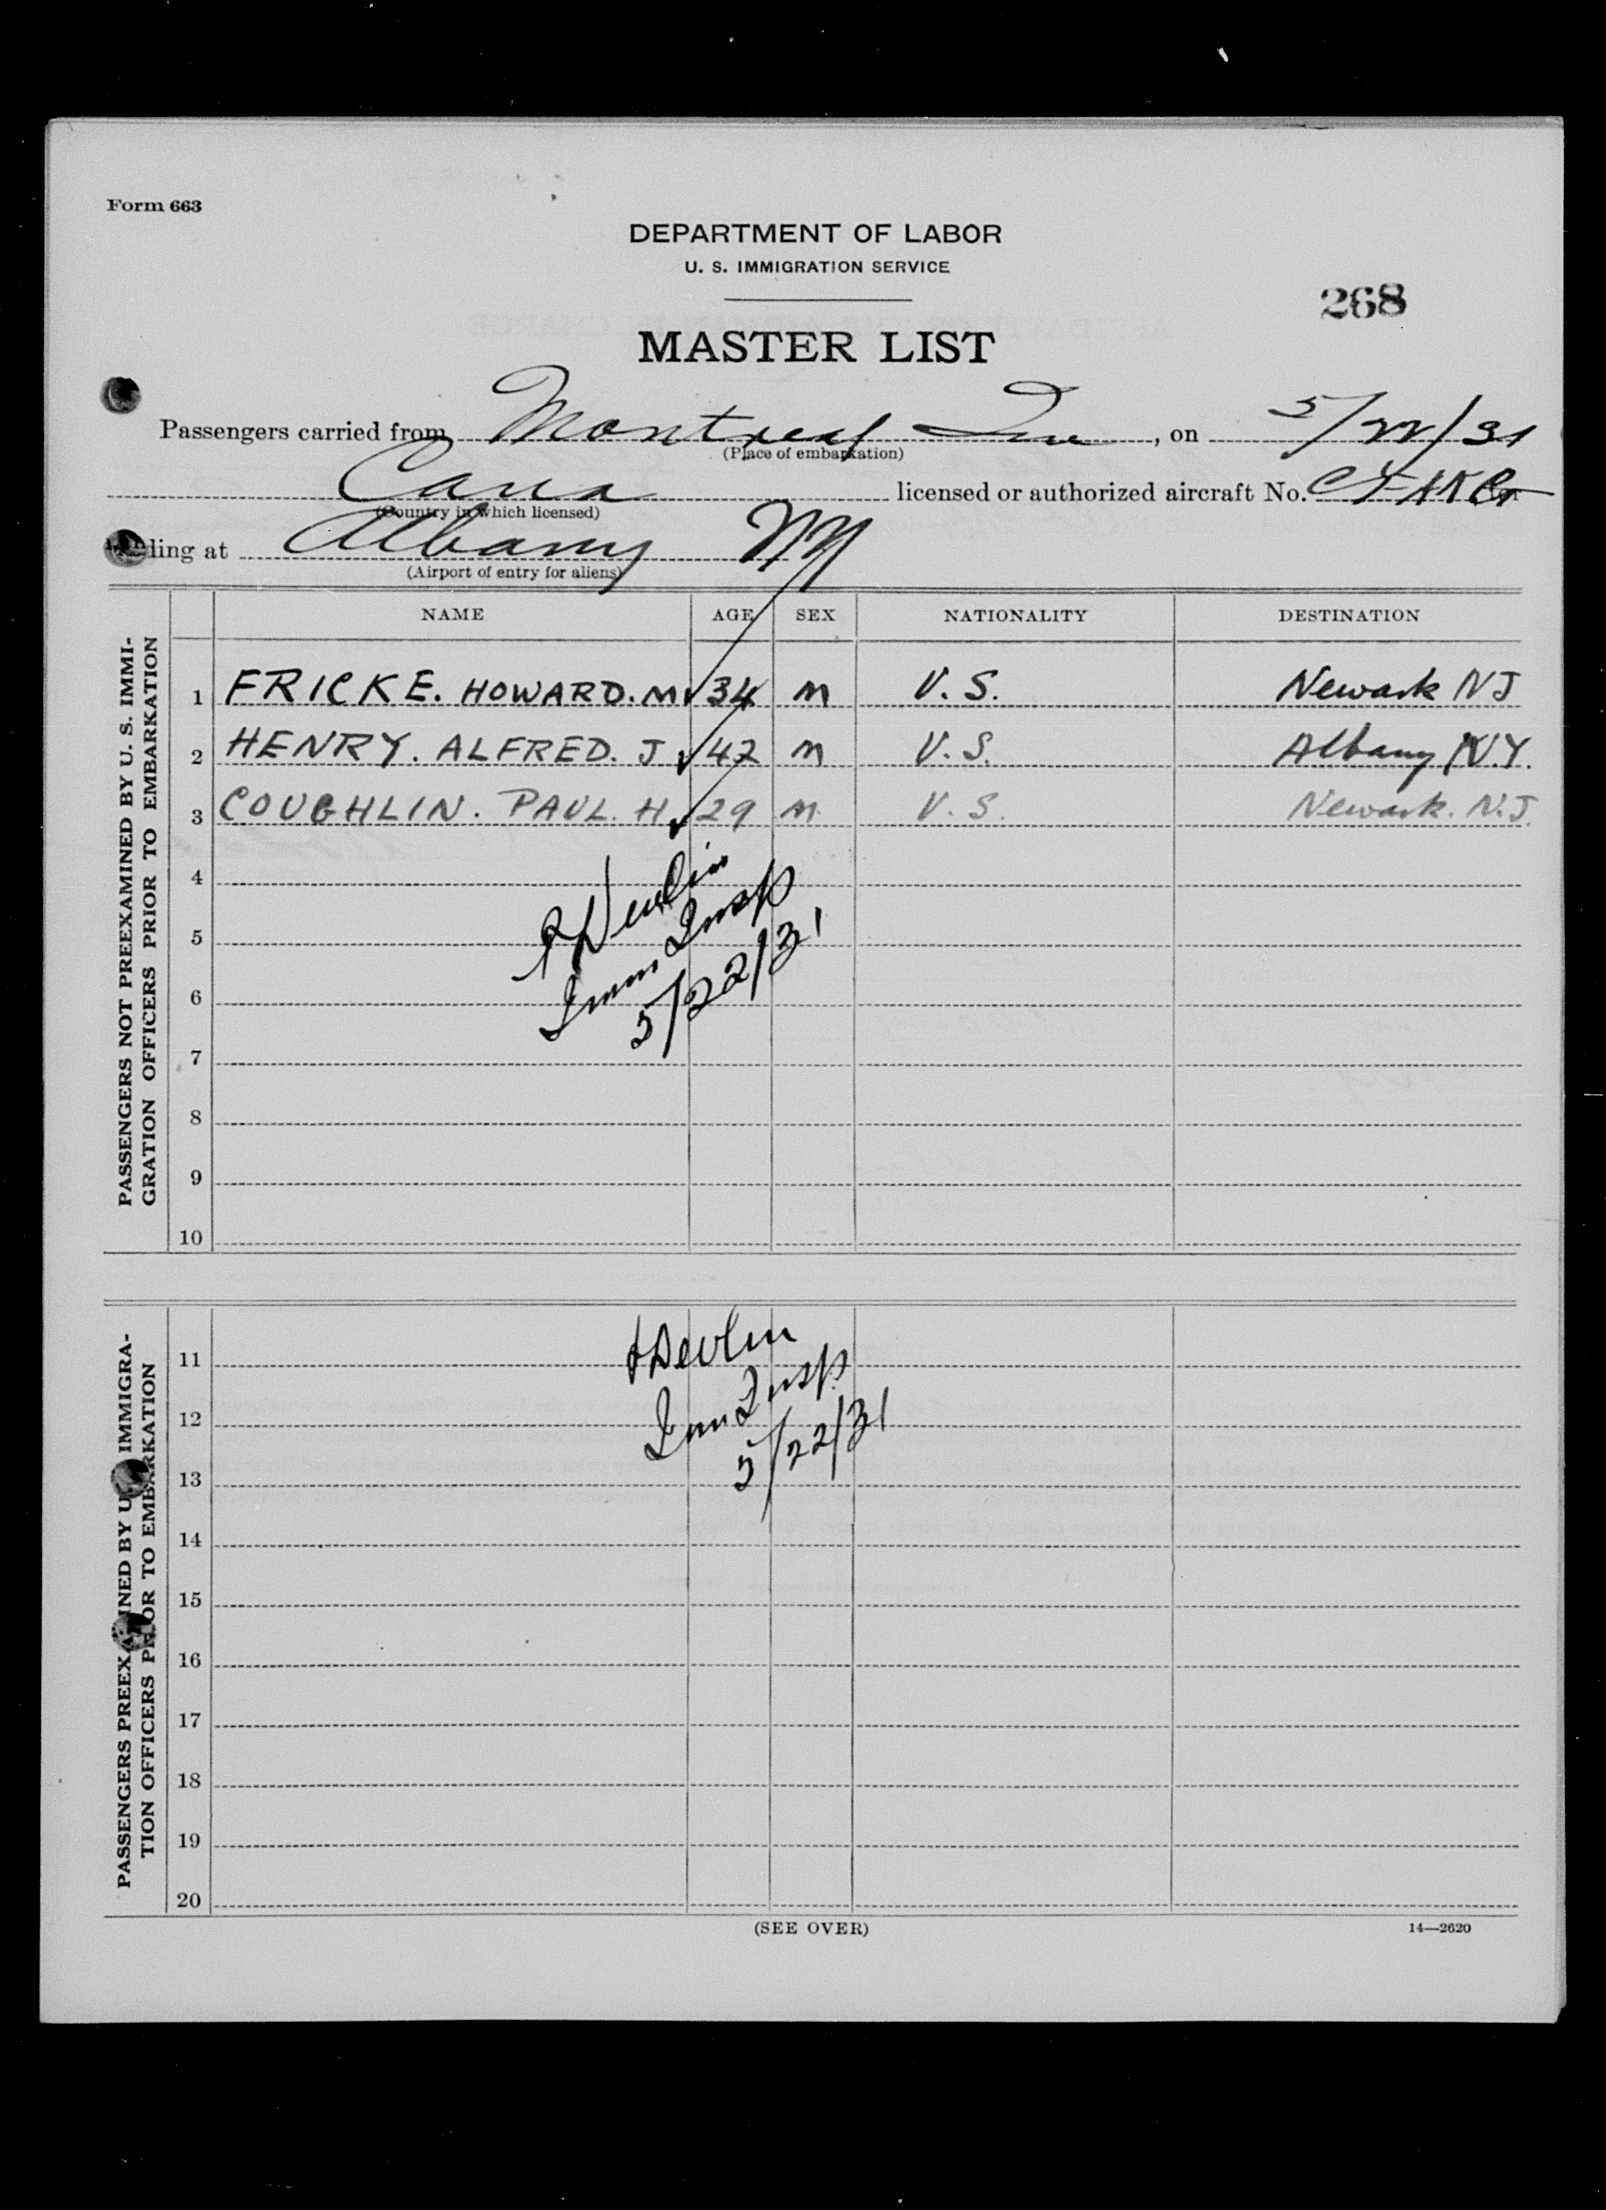 Form 663
DEPARTMENT OF LABOR
U. S. IMMIGRATION SERVICE
268
MASTER LIST
Passengers carried from Montreal Que, on 5/22/31
(Place of embarkation)
Cana licensed or authorized aircraft No. CF AKG
(Country in which licensed)
landing at Albany NY
(Airport of entry for aliens)
NAME AGE SEX NATIONALITY DESTINATION
PASSENGERS NOT PREEXAMINED BY U. S. IMMI-
GRATION OFFICERS PRIOR TO EMBARKATION
1 FRICKE. HOWARD. M 34 M U.S. Newark NJ
2 HENRY. ALFRED. J 42 M U.S. Albany N.Y.
3 COUGHLIN. PAUL. H 29 M U.S. Newark. N.J.
4
5
6
7
8
9
10
Devlin
Imm Insp
5/22/31
PASSENGERS PREEXAMINED BY U. S. IMMIGRA-
TION OFFICERS PRIOR TO EMBARKATION
11
12
13
14
15
16
17
18
19
20
Devlin
Imm Insp
5/22/31
(SEE OVER)
14—2620